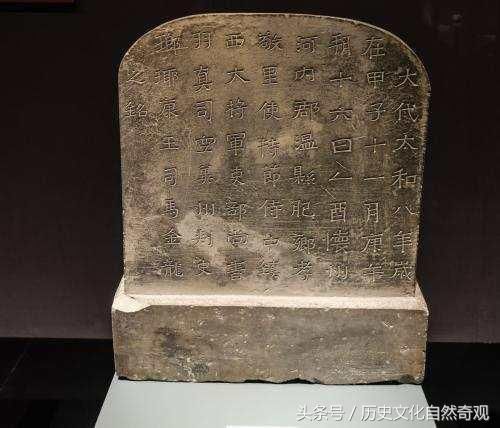 大代太和八年歲
在甲子十一月庚午
朔十六日乙酉懷州
河內郡溫縣肥鄉孝
敬里使持節侍中鎮
西大將軍吏部尚書
羽真司空冀州刺史
瑯琊康王司馬金龍
之銘
头条号 / 历史文化自然奇观